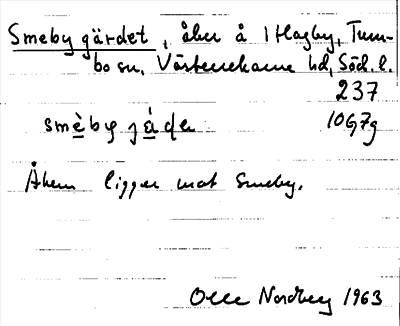 Smeby gärdet, åker å 1 Hagby, Tum-
bo sn, Västerrekarne hd, Söd. l.
237
smèby jä́ḍe 10G7g
Åkern ligger mot Smeby.
Olle Nordberg 1963